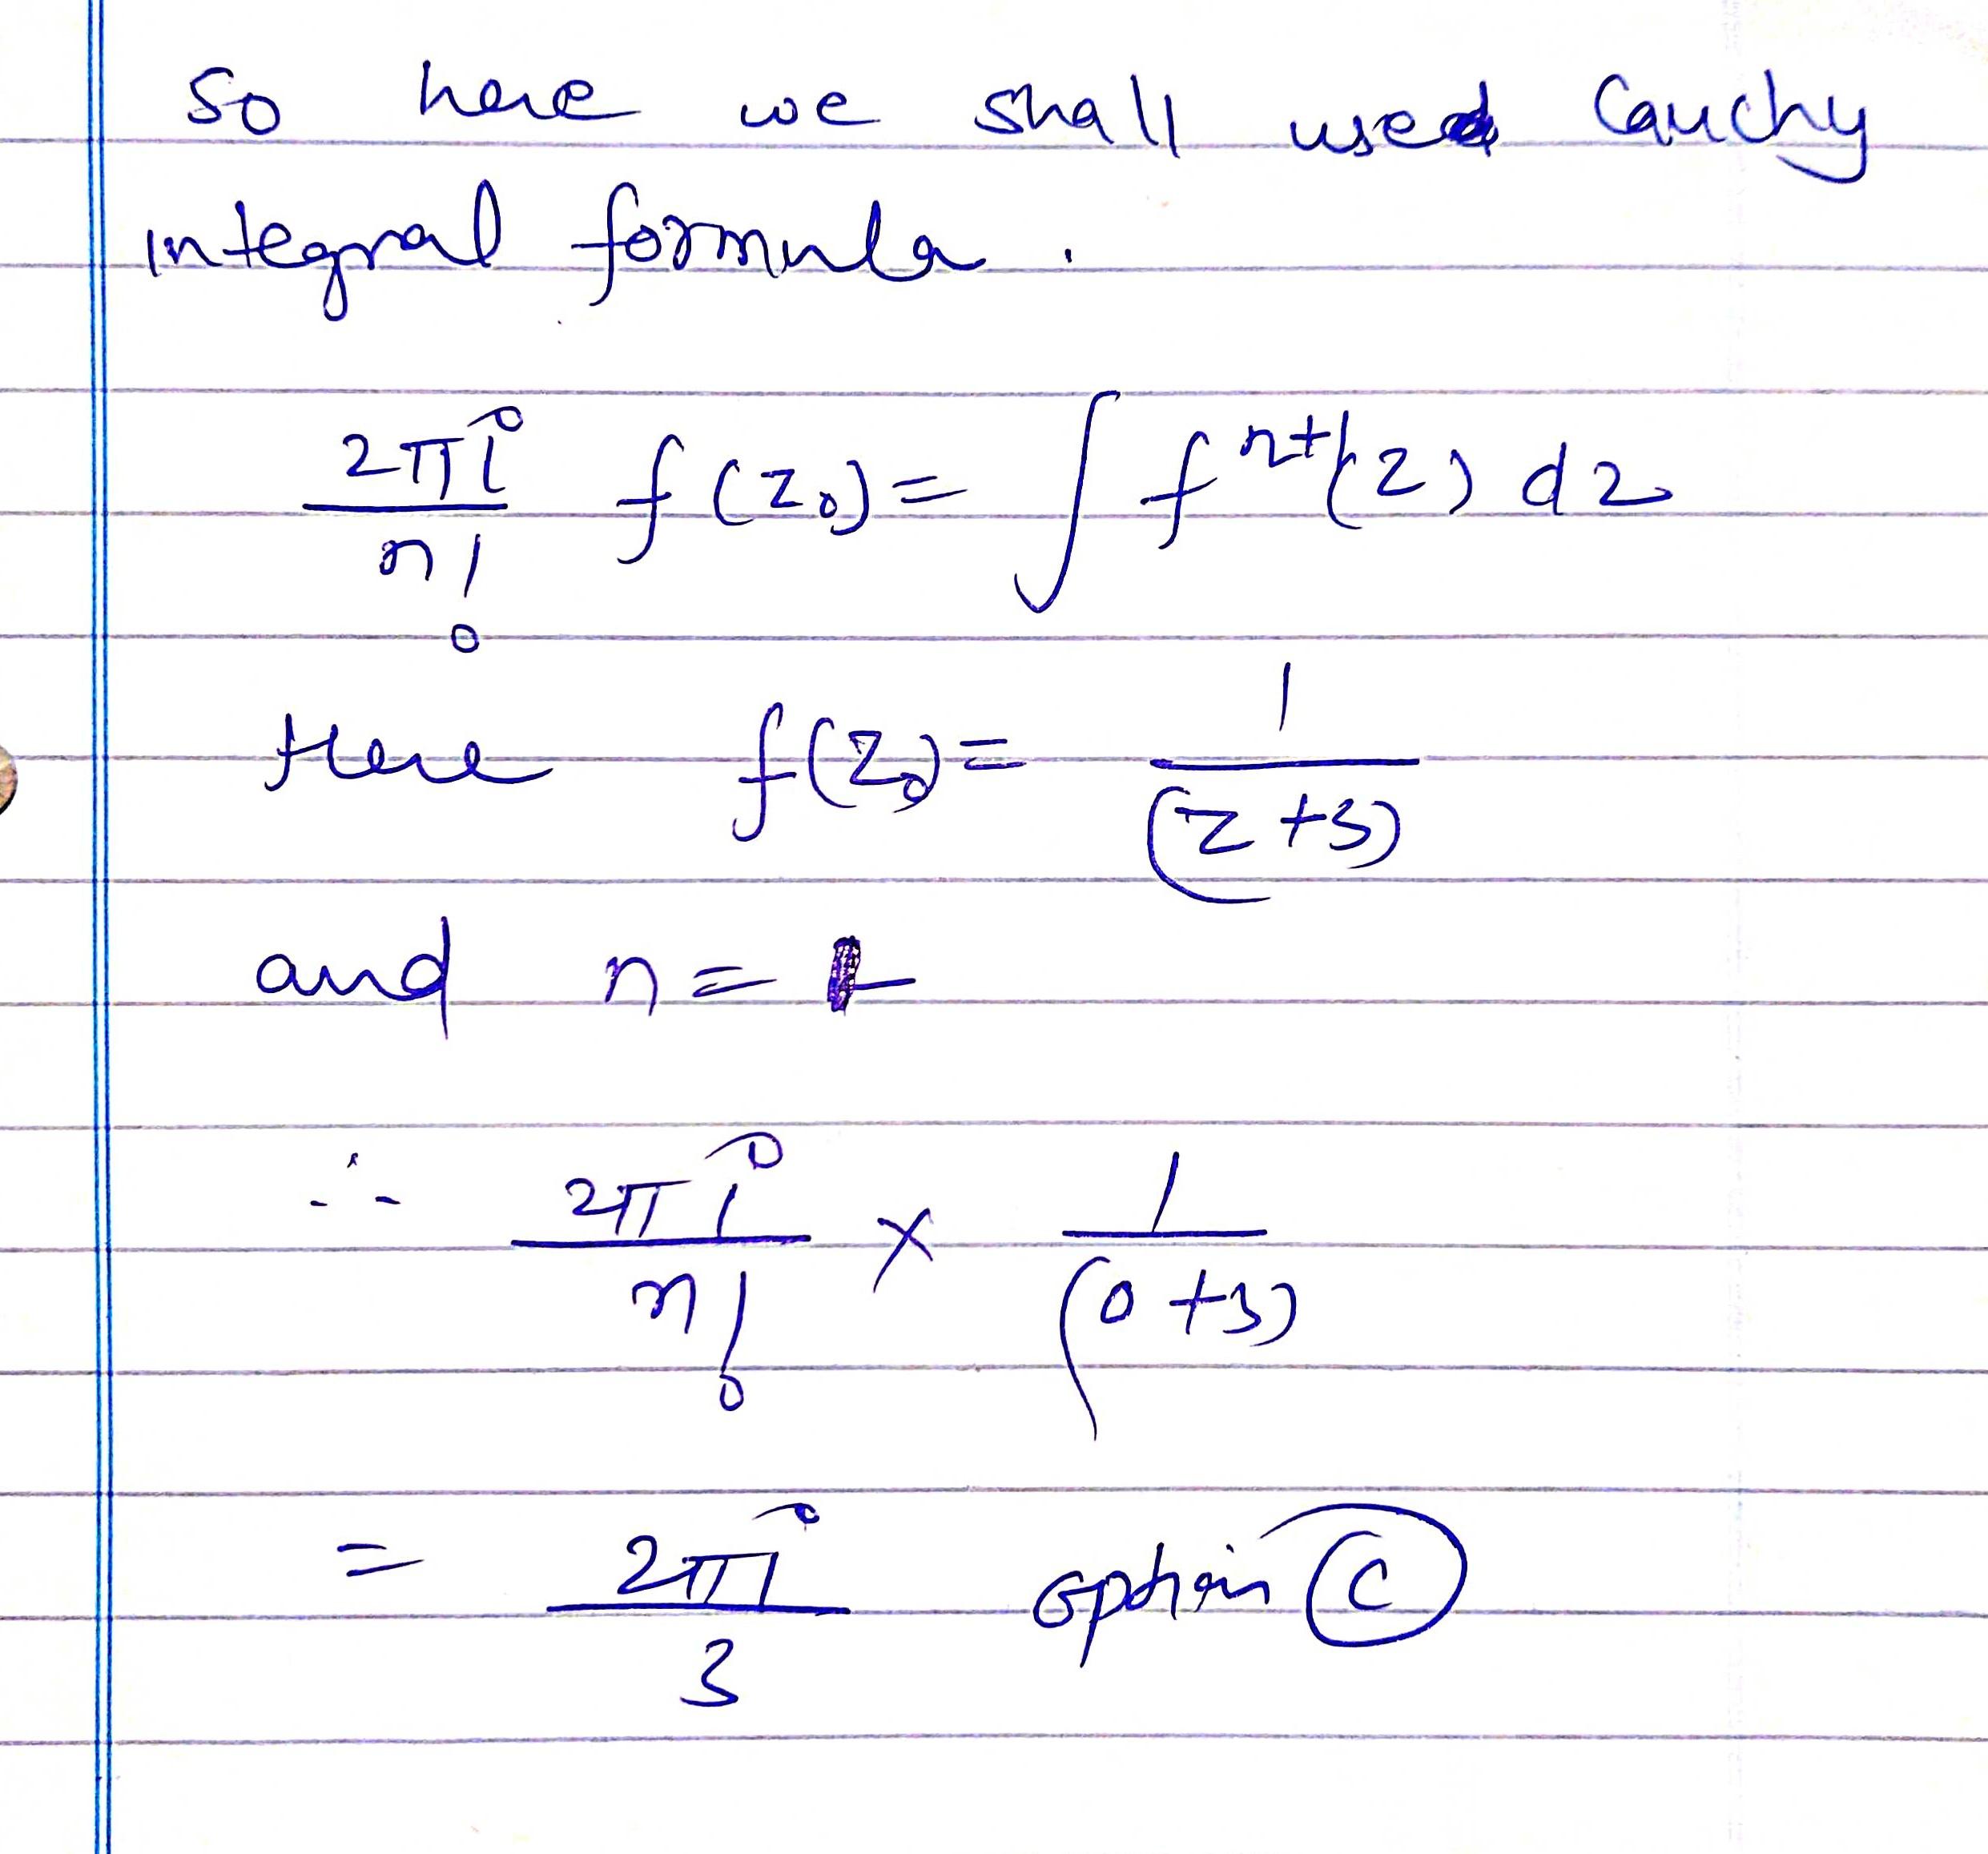 So here we shall used Cauchy
integral formula.
2πi/n! f(z₀) = ∫ fⁿ⁺¹(z) dz
Here f(z₀) = 1/(z+3)
and n = 1
∴ 2πi/n! × 1/(0+3)
= 2πi/3 option C